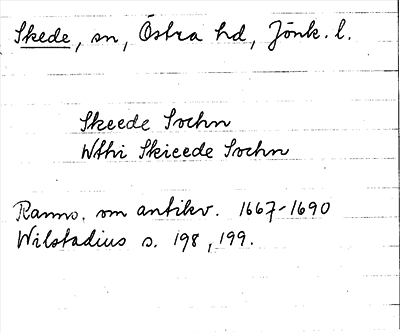 Skede, sn, Östra hd, Jönk. l.
Skeede Sochn
Wthi Skieede Sochn
Ranns. om antikv. 1667-1690
Wilstadius s. 198, 199.